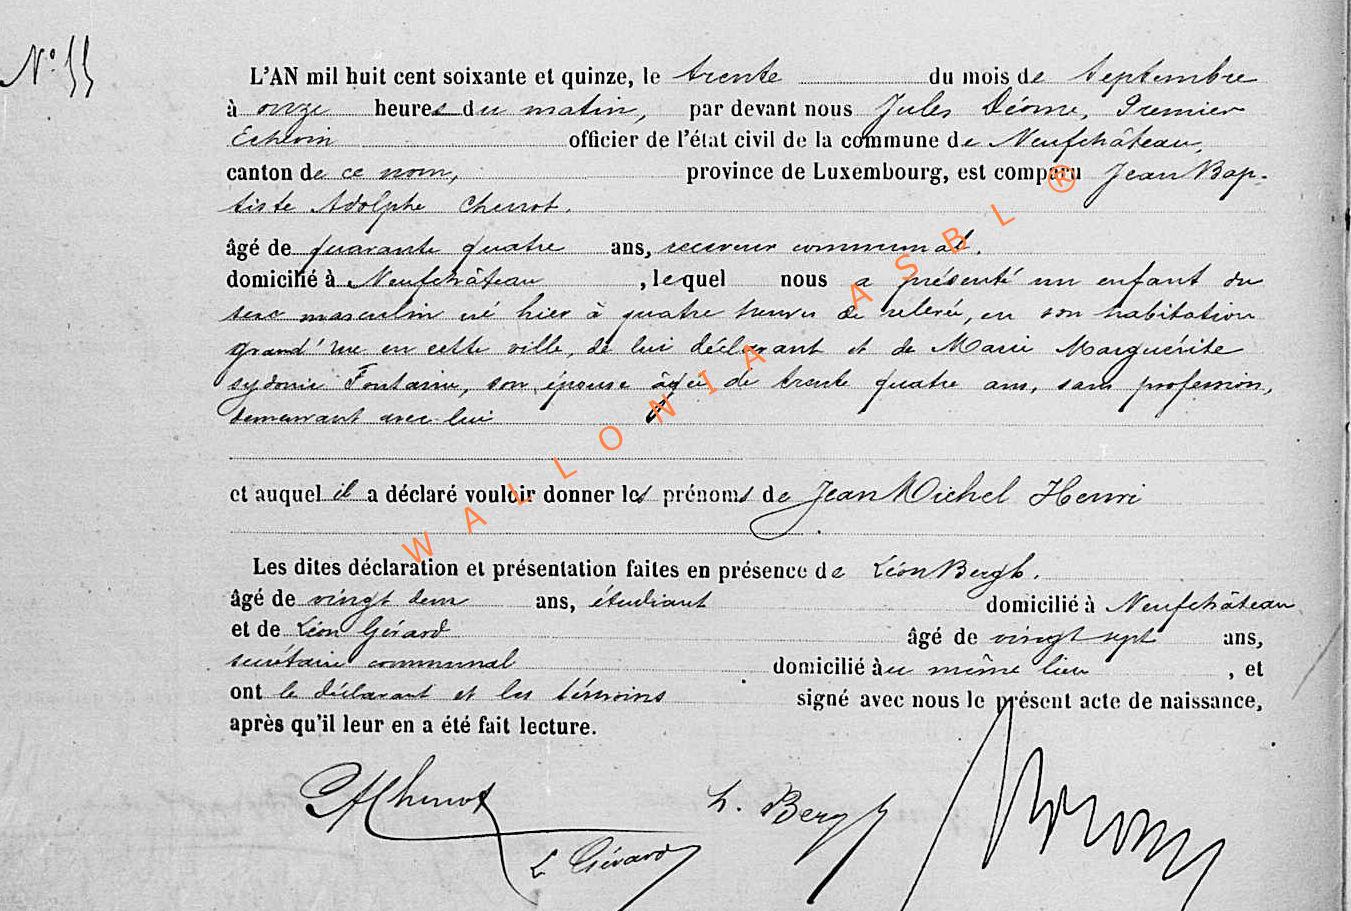 N° 55
L'AN mil huit cent soixante et quinze, le trente du mois de Septembre
à onze heures du matin, par devant nous Jules Premier
Echevin officier de l'état civil de la commune de Neufchâteau,
canton de ce nom, province de Luxembourg, est comparu Jean Bap-
tiste Adolphe Chenot.
âgé de quarante quatre ans, receveur communal,
domicilié à Neufchâteau, lequel nous a présenté un enfant du
sexe masculin né hier à quatre heures de relevée, en son habitation
grand'rue en cette ville, de lui déclarant et de Marie Marguérite
Sydonie Fontaine, son épouse âgée de trente quatre ans, sans profession,
demeurant avec lui
et auquel il a déclaré vouloir donner les prénoms de Jean Michel Henri
Les dites déclaration et présentation faites en présence de Léon Bergh.
âgé de vingt deux ans, étudiant domicilié à Neufchâteau
et de Léon Gérard âgé de vingt sept ans,
secrétaire communal domicilié au même lieu, et
ont le déclarant et les témoins signé avec nous le présent acte de naissance,
après qu'il leur en a été fait lecture.
Chenot L. Bergh
L Gérard
WALLONIA ASBL ®